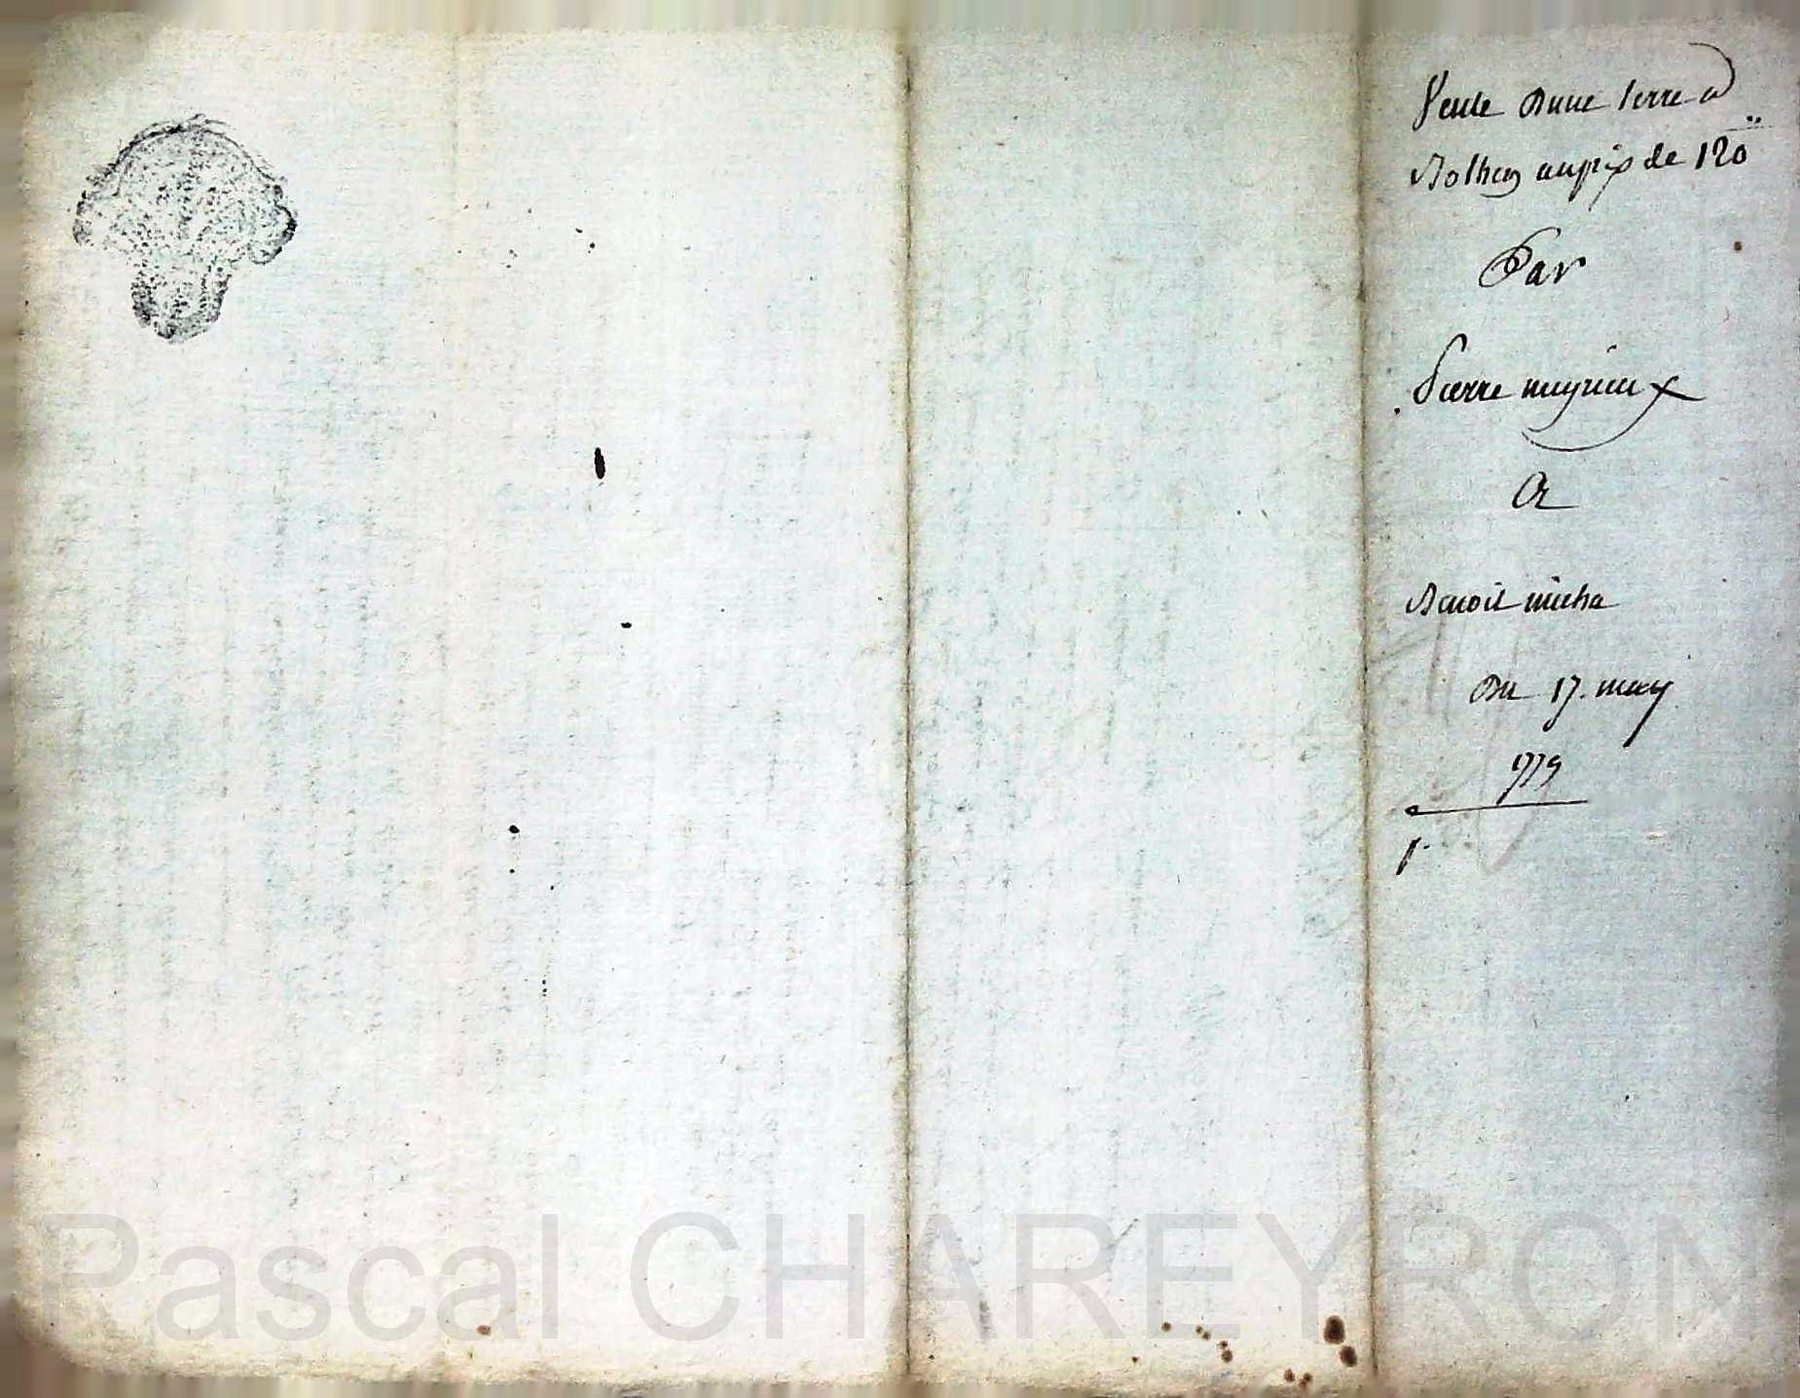 Vente dune terre a
Botheoy au prix de 120
Par
Pierre meyrieux
A
Benoit micha
Du 17. may
1779
1.
Pascal CHAREYRON